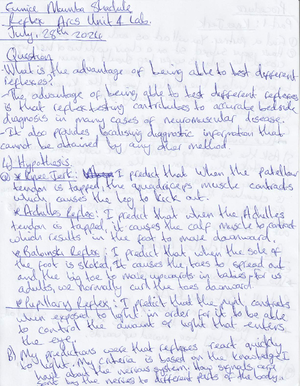 Eunice Mumba Shidule
Reflex Arcs Unit 4 Lab.
July, 28th 2024
Question
What is the advantage of being able to test different
reflexes?
-The advantage of being able to test different reflexes
is that reflex testing contributes to accurate bedside
diagnosis in many cases of neuromuscular disease.
-It also provides localising diagnostic information that
cannot be obtained by any other method
Hypothesis
a) * Knee Jerk: I predict that when the patellar
tendon is tapped, the quadriceps muscle contracts
which causes the leg to kick out.
* Achilles Reflex: I predict that when the Achilles
tendon is tapped, it causes the calf muscle to contract
which results in the foot to move downward.
* Babinski Reflex: I predict that when the sole of
the foot is stroked, it causes the toes to spread out
and the big toe to move upwards in babies for us
adults, we normally curl the toes downward
* Pupillary Reflex: I predict that the pupil contracts
when exposed to light in order for it to be able
to control the amount of light that enters
the eye.
B) My predictions were that reflexes react quickly
to light. My criteria is based on the knowledge I
have about the nervous system. How signals are
sent by the nerves to different parts of the body.